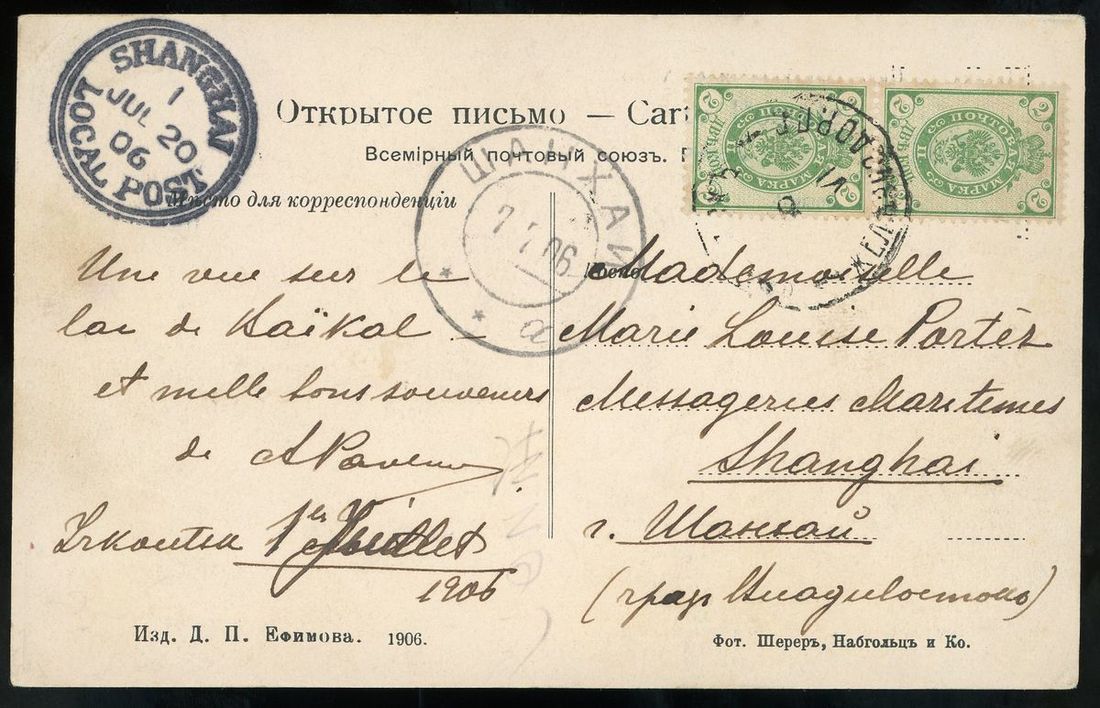 SHANGHAI
1
JUL 20
06
LOCAL POST
Открытое письмо — Cart
Всемірный почтовый союзъ.
Мѣсто для корреспонденціи
ШАНХАЙ
7 7 06
* * а
2 ПОЧТОВАЯ МАРКА 2
2 ПОЧТОВАЯ МАРКА 2
VI
Une vue sur le
lac de Baïkal —
et mille bons souvenirs
de
Irkoutsk 1er Juillet
1906
Mademoiselle
Marie Louise Portèr
Messageries Maritimes
Shanghai
г. Шанхай
Изд. Д. П. Ефимова. 1906.
Фот. Шереръ, Набгольцъ и Ко.